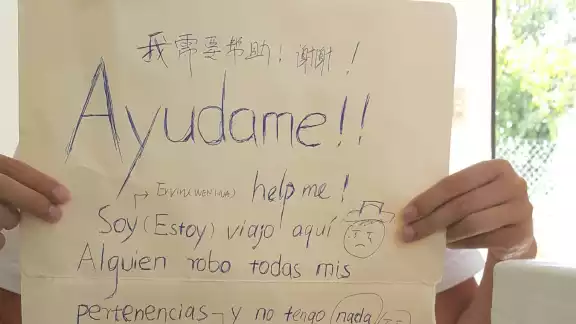 我需要帮助！谢谢！
Ayudame!!
help me!
Soy (Estoy) viajo aquí
Alguien robo todas mis
pertenencias y no tengo nada